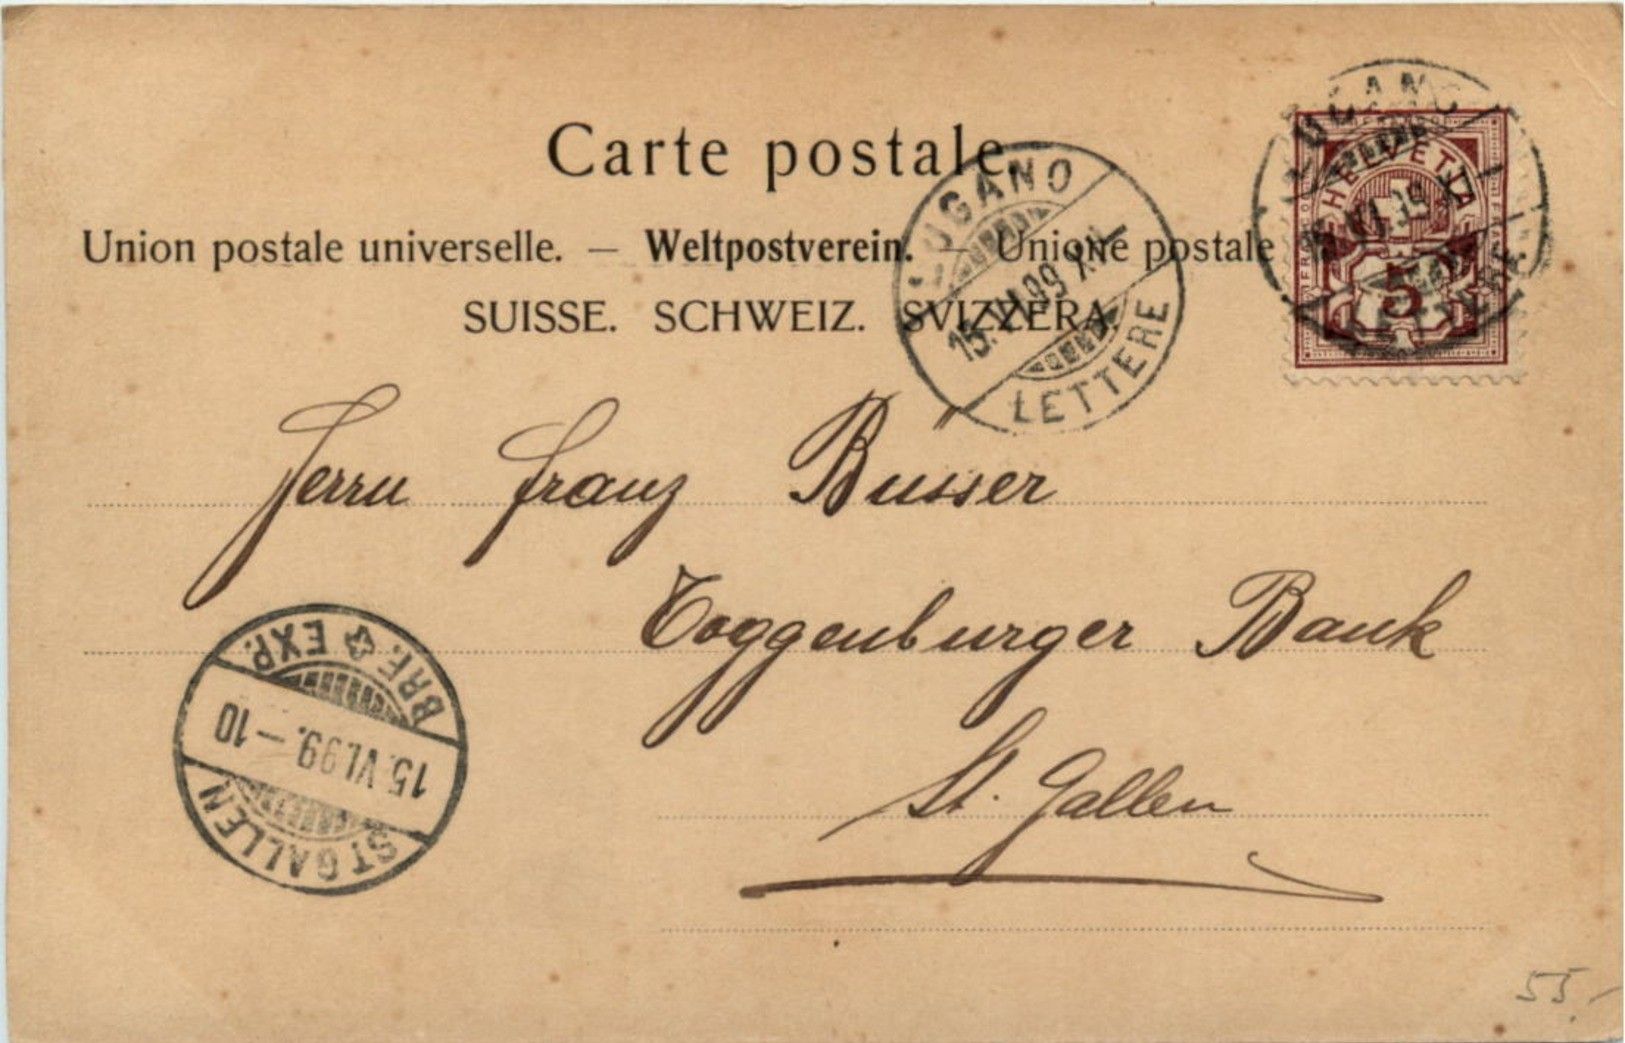 Carte postale.
Union postale universelle. — Weltpostverein. — Unione postale
SUISSE. SCHWEIZ. SVIZZERA.
LUGANO
15.VI.99 XII
LETTERE
LUGANO
VI.99
LETTERE
HELVETIA
FRANCO
5
Herrn Franz Busser
Toggenburger Bank
St. Gallen
BRF. EXP.
15.VI.99.–10
ST GALLEN
55,-